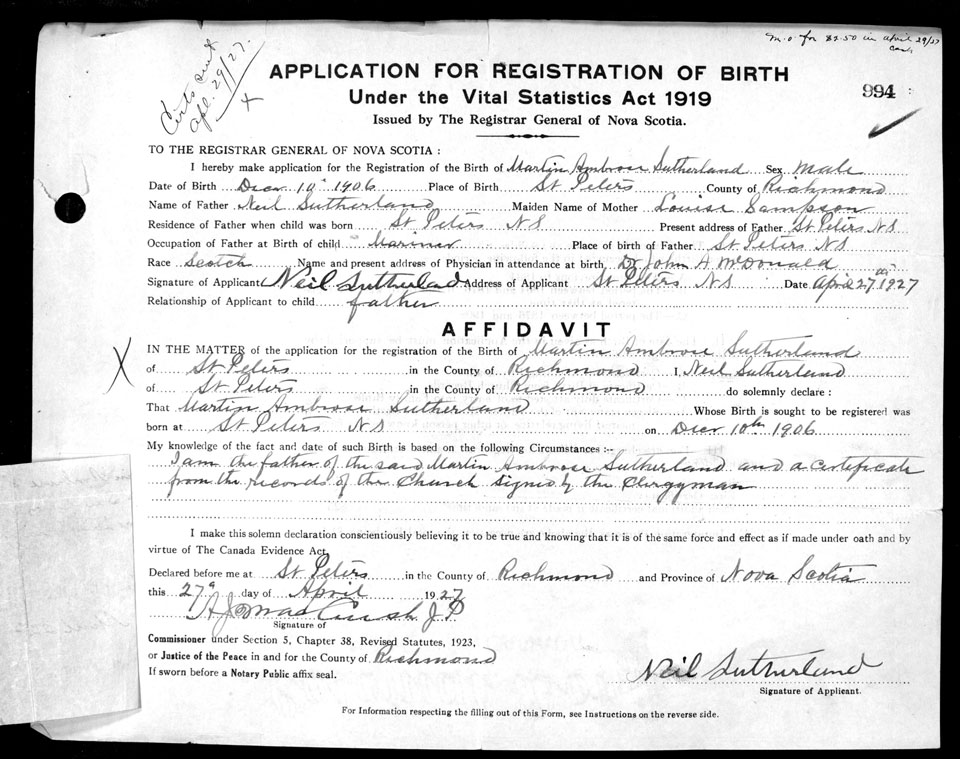 m.o. for $2.50 in april 29/27
Certs sent
apl. 29/27.
X
APPLICATION FOR REGISTRATION OF BIRTH
994
Under the Vital Statistics Act 1919
Issued by The Registrar General of Nova Scotia.
TO THE REGISTRAR GENERAL OF NOVA SCOTIA :
I hereby make application for the Registration of the Birth of Martin Ambrose Sutherland Sex Male
Date of Birth Decr 10th 1906 Place of Birth St Peters County of Richmond
Name of Father Neil Sutherland Maiden Name of Mother Louise Sampson
Residence of Father when child was born St Peters N S Present address of Father St Peters N S
Occupation of Father at Birth of child Mariner Place of birth of Father St Peters N S
Race Scotch Name and present address of Physician in attendance at birth, Dr John A McDonald
Signature of Applicant Neil Sutherland Address of Applicant St Peters N S Date April 27th 1927
Relationship of Applicant to child father
AFFIDAVIT
X
IN THE MATTER of the application for the registration of the Birth of Martin Ambrose Sutherland
of St Peters in the County of Richmond I, Neil Sutherland
of St Peters in the County of Richmond do solemnly declare :
That Martin Ambrose Sutherland Whose Birth is sought to be registered was
born at St Peters N S on Decr 10th 1906
My knowledge of the fact and date of such Birth is based on the following Circumstances :-
I am the father of the said Martin Ambrose Sutherland and a certificate
from the records of the Church signed by the Clergyman
I make this solemn declaration conscientiously believing it to be true and knowing that it is of the same force and effect as if made under oath and by
virtue of The Canada Evidence Act.
Declared before me at St Peters in the County of Richmond and Province of Nova Scotia
this 27th day of April 1927
J P
Signature of
Commissioner under Section 5, Chapter 38, Revised Statutes, 1923,
or Justice of the Peace in and for the County of Richmond
If sworn before a Notary Public affix seal.
Neil Sutherland
Signature of Applicant.
For Information respecting the filling out of this Form, see Instructions on the reverse side.